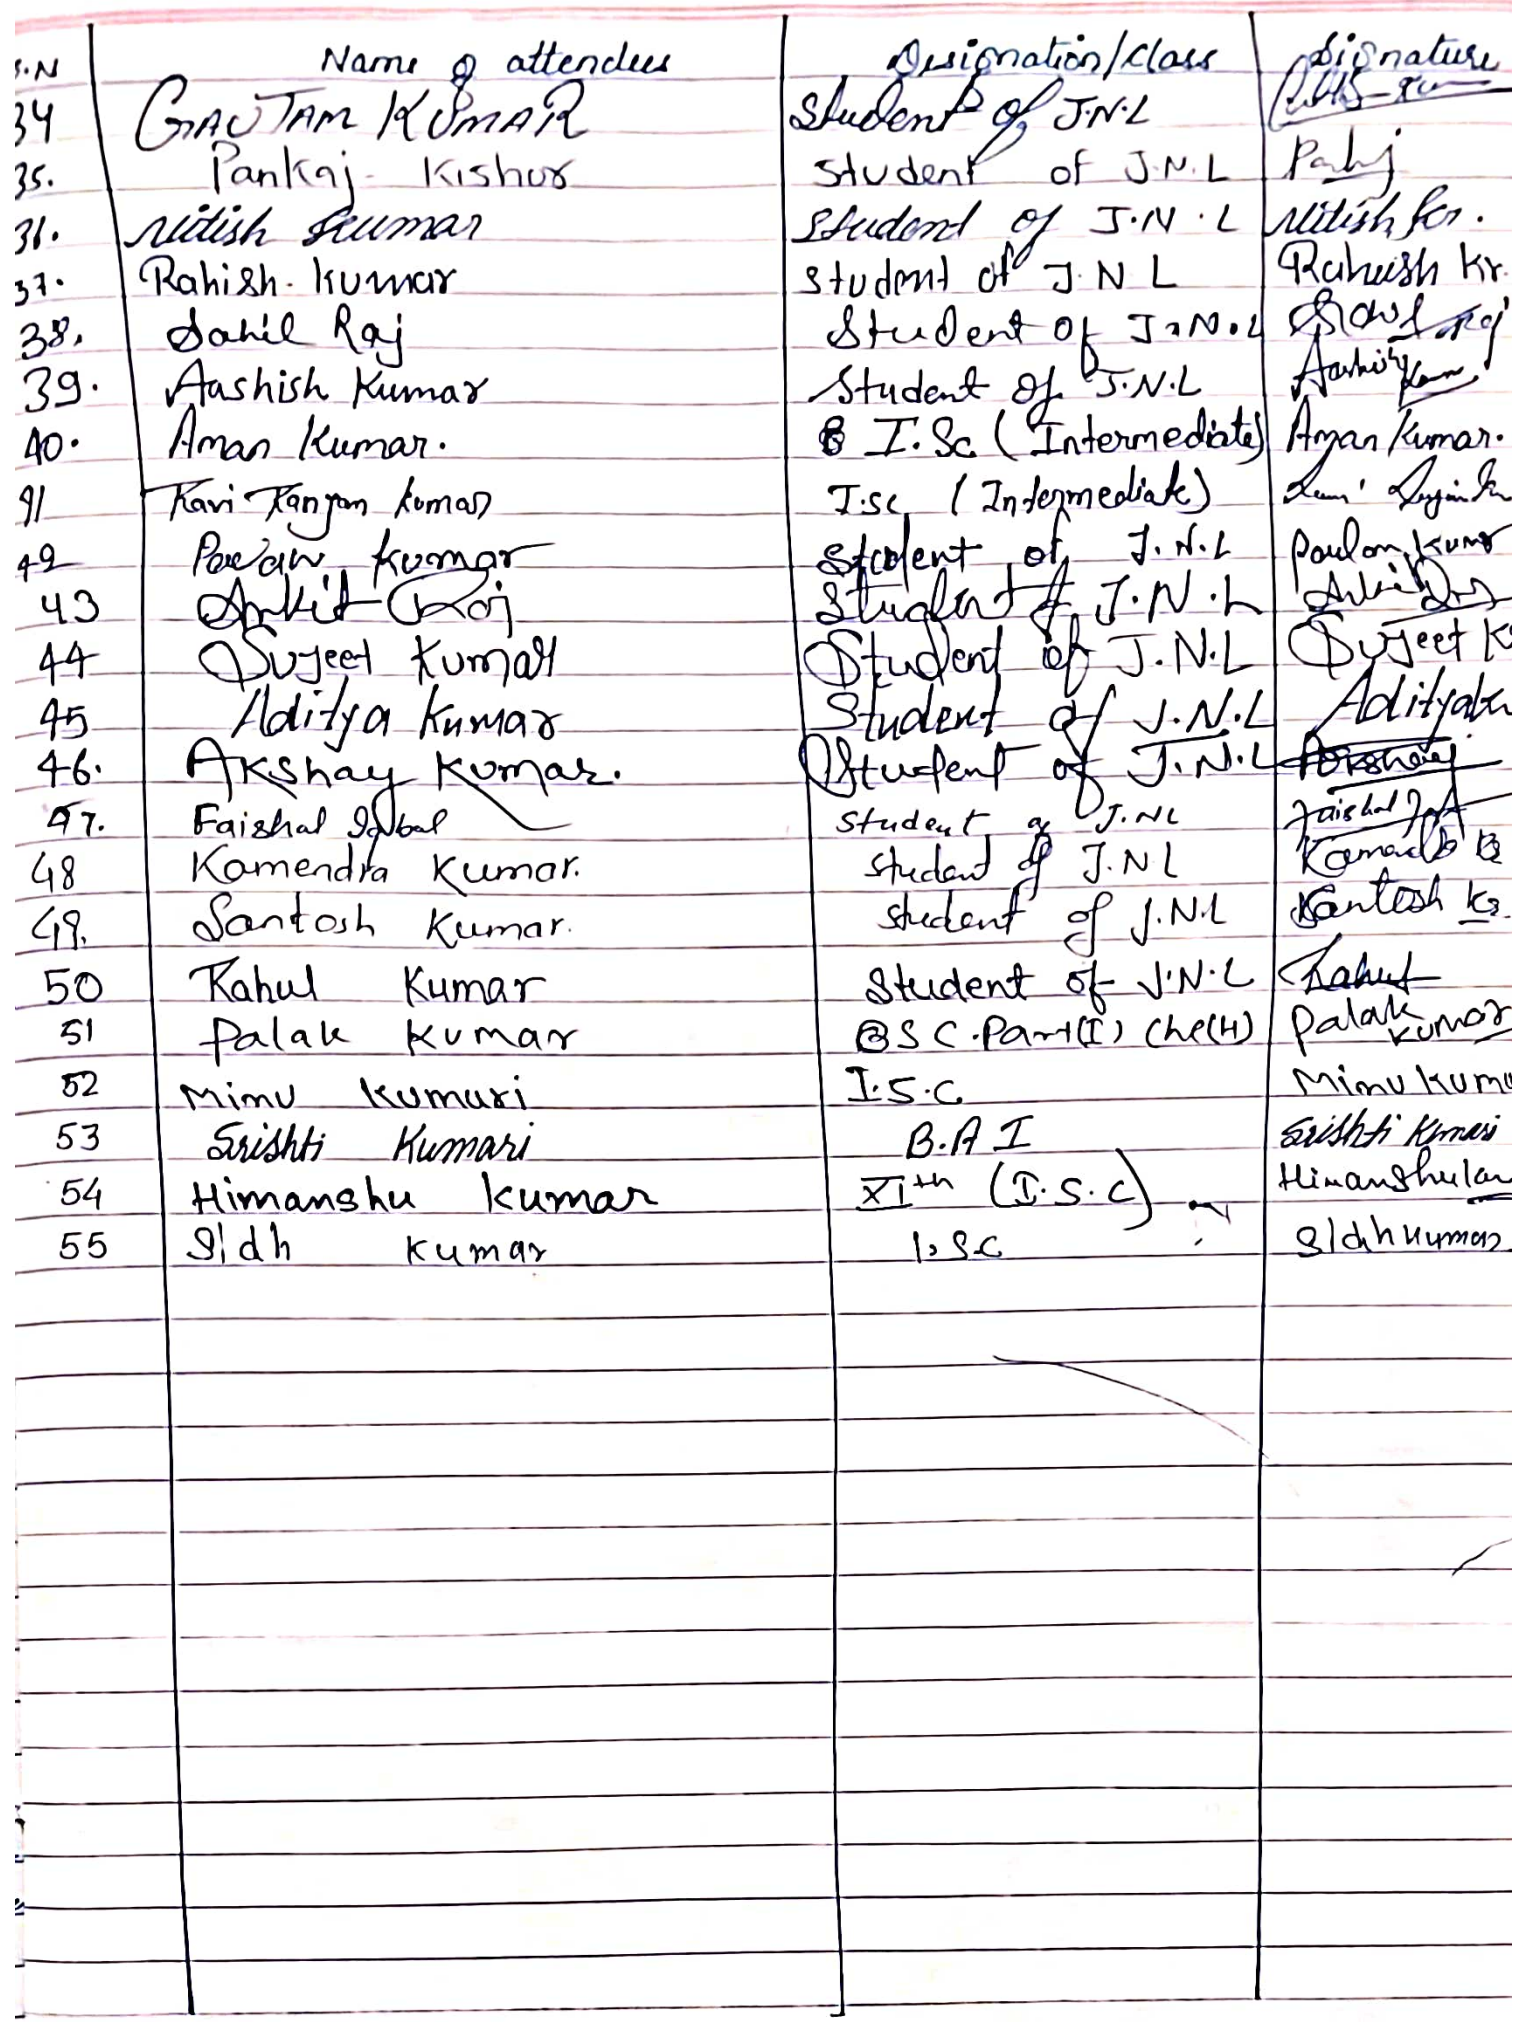 S.N Name of attendees Designation/Class Signature
34 GAUTAM KUMAR Student of J.N.L
35. Pankaj Kishor Student of J.N.L
36. Nitish Kumar Student of J.N.L Nitish Kr.
37. Rahish Kumar Student of J N L Rahish Kr.
38. Sahil Raj Student of J.N.L Raj
39. Aashish Kumar Student of J.N.L Aashish
40. Aman Kumar. I.Sc (Intermediate) Aman Kumar.
41 Ravi Ranjan Kumar I.sc (Intermediate)
42 Pawan Kumar Student of J.N.L Kumar
43 Ankit Raj Student of J.N.L Ankit Raj
44 Sujeet Kumar Student of J.N.L Sujeet K
45 Aditya Kumar Student of J.N.L Aditya
46. Akshay Kumar. Student of J.N.L Akshay
47. Faishal Iqbal Student of J.NL Faishal
48 Kamendra Kumar. Student of J.NL
49. Santosh Kumar. Student of J.N.L Santosh Kr.
50 Rahul Kumar Student of J.N.L Rahul
51 Palak Kumar BSC.Part(I) Che(H) Palak Kumar
52 Minu Kumari I.S.C Minu Kuma
53 Srishti Kumari B.A I Srishti Kumari
54 Himanshu Kumar XIth (I.S.C) Himanshu
55 Sidh Kumar I.SC Sidh Kumar